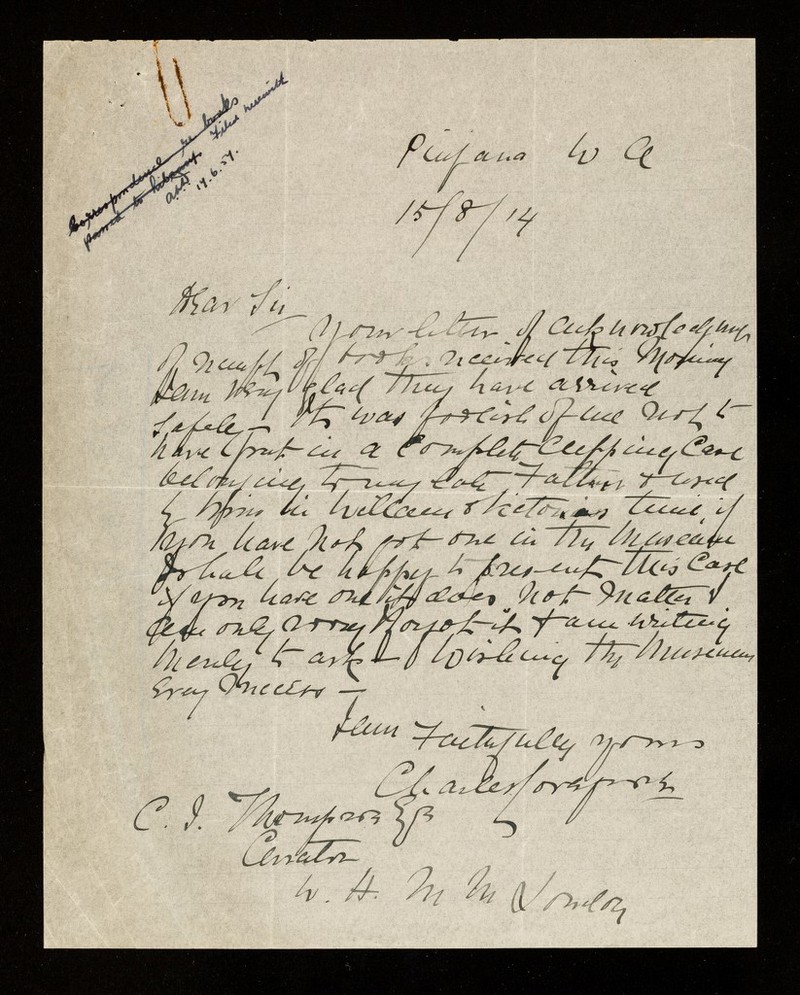 Correspondence re books
passed to library. Filed herewith
17.6.57.
Pinjarra W A
15/8/14
Dear Sir
Your letter of acknowledgment
of receipt of books received this Morning
I am very glad they have arrived
safely – It was foolish of me not to
have put in a Complete Cupping Case
belonging to my late Father & used
by him in William & Victorias time, if
you have not got one in the Museum
I shall be happy to present this Case
if you have one it does not matter I
am only sorry I forgot it & am writing
merely to ask – Wishing the Museum
every success –
I am Faithfully yours
Charles
C. J. Thompson Esq
Curator
W. H. M M London